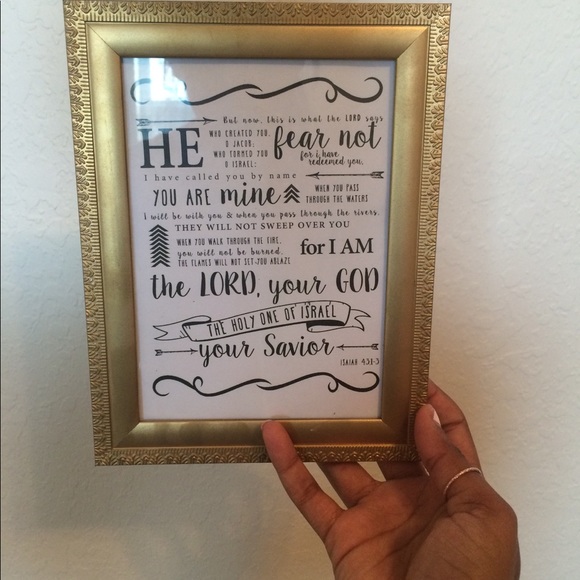 But now, this is what the LORD says
HE WHO CREATED YOU,
O JACOB;
WHO FORMED YOU
O ISRAEL;
fear not
for i have
redeemed you.
I have called you by name
YOU ARE mine
WHEN YOU PASS
THROUGH THE WATERS
I will be with you & when you pass through the rivers,
THEY WILL NOT SWEEP OVER YOU
WHEN YOU WALK THROUGH THE FIRE,
you will not be burned.
THE FLAMES WILL NOT SET YOU ABLAZE
for I AM
the LORD, your GOD
THE HOLY ONE OF ISRAEL
your Savior
ISAIAH 43:1-3